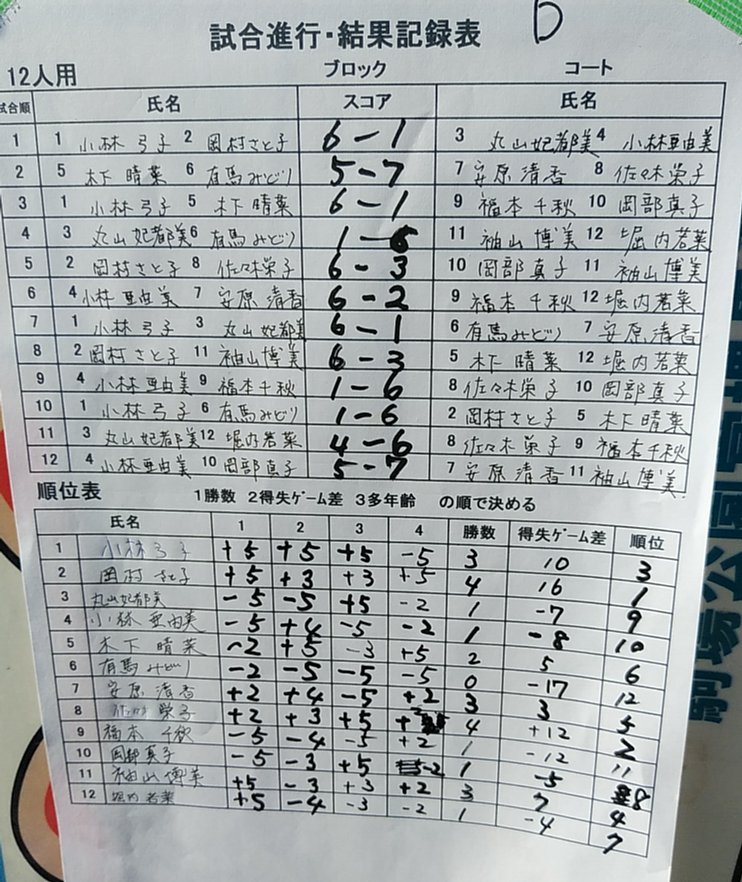 D
試合進行・結果記録表
12人用 ブロック コート
試合順 氏名 スコア 氏名
1 1 小林 弓子 2 岡村さと子 6-1 3 丸山妃都美 4 小林亜由美
2 5 木下 晴菜 6 有馬みどり 5-7 7 安原清香 8 佐々木栄子
3 1 小林弓子 5 木下 晴菜 6-1 9 福本千秋 10 岡部真子
4 3 丸山妃都美 6 有馬みどり 1-6 11 袖山博美 12 堀内若菜
5 2 岡村さと子 8 佐々木栄子 6-3 10 岡部真子 11 袖山博美
6 4 小林亜由美 7 安原清香 6-2 9 福本千秋 12 堀内若菜
7 1 小林弓子 3 丸山妃都美 6-1 6 有馬みどり 7 安原清香
8 2 岡村さと子 11 袖山博美 6-3 5 木下 晴菜 12 堀内若菜
9 4 小林亜由美 9 福本千秋 1-6 8 佐々木栄子 10 岡部真子
10 1 小林弓子 6 有馬みどり 1-6 2 岡村さと子 5 木下晴菜
11 3 丸山妃都美 12 堀内若菜 4-6 8 佐々木栄子 9 福本千秋
12 4 小林亜由美 10 岡部真子 5-7 7 安原清香 11 袖山博美
順位表 1勝数 2得失ゲーム差 3多年齢 の順で決める
氏名 1 2 3 4 勝数 得失ゲーム差 順位
1 小林弓子 +5 +5 +5 -5 3 10 3
2 岡村さと子 +5 +3 +3 +5 4 16 1
3 丸山妃都美 -5 -5 +5 -2 1 -7 9
4 小林亜由美 -5 +4 -5 -2 1 -8 10
5 木下 晴菜 -2 +5 -3 +5 2 5 6
6 有馬みどり -2 -5 -5 -5 0 -17 12
7 安原清香 +2 +4 -5 +2 3 3 5
8 佐々木 栄子 +2 +3 +5 +2 4 +12 2
9 福本 千秋 -5 -4 -5 +2 1 -12 11
10 岡部真子 -5 -3 +5 -2 1 -5 8
11 袖山博美 +5 -3 +3 +2 3 7 4
12 堀内若菜 +5 -4 -3 -2 1 -4 7